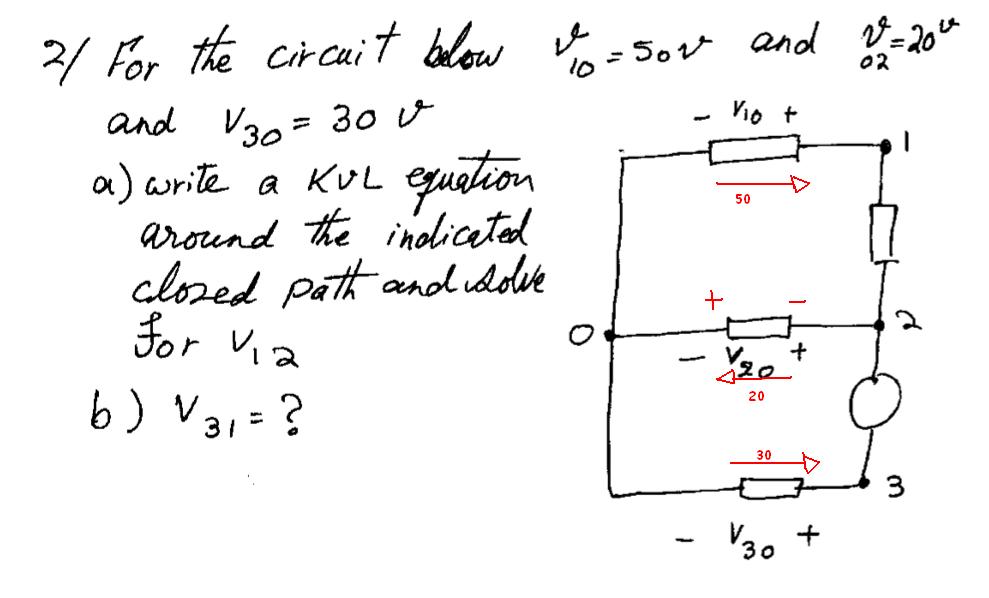 2/ For the circuit below v10 = 50v and v02 = 20v
and V30 = 30 v
a) write a KVL equation
around the indicated
closed path and solve
for V12
b) V31 = ?
- V10 +
1
50
+ -
0
2
- V20 +
20
30
3
- V30 +